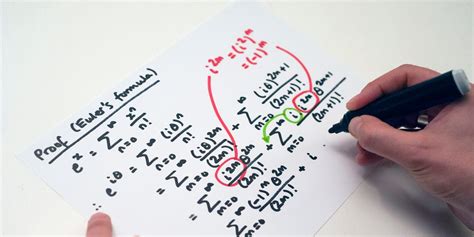 Proof (Euler's formula)
i²ᵐ = (i²)ᵐ
= (-1)ᵐ
eˣ = ∑ₙ₌₀^∞ xⁿ/n!
e^{iθ} = ∑ₙ₌₀^∞ (iθ)ⁿ/n!
= ∑ₘ₌₀^∞ (iθ)²ᵐ/(2m)! + ∑ₘ₌₀^∞ (iθ)²ᵐ⁺¹/(2m+1)!
= ∑ₘ₌₀^∞ i²ᵐθ²ᵐ/(2m)! + ∑ₘ₌₀^∞ i i²ᵐθ²ᵐ⁺¹/(2m+1)!
= ∑ₘ₌₀^∞ (-1)ᵐθ²ᵐ/(2m)! + i